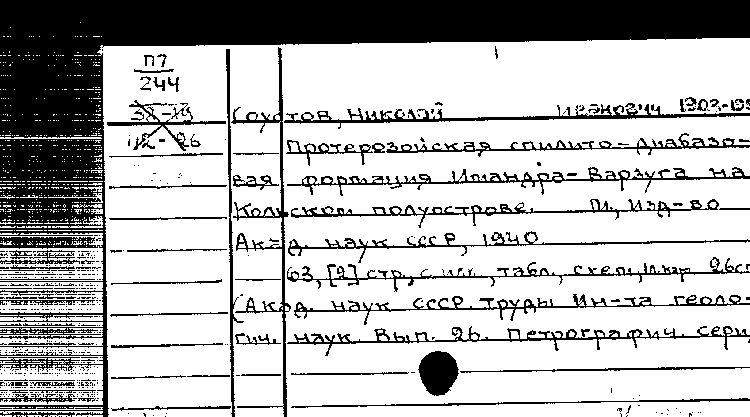 П7
244
38-19
112-26
Сохотов, Николай Иванович 1903-19
Протерозойская спилито-диабазо-
вая формация Имандра-Варзуга на
Кольском полуострове. М., Изд-во
Акад. наук СССР, 1940
63, [2] стр, с илл, табл, схем, 1 л. кар 26с
(Акад. наук СССР. Труды Ин-та геоло-
гич. наук. Вып. 26. Петрографич. сери